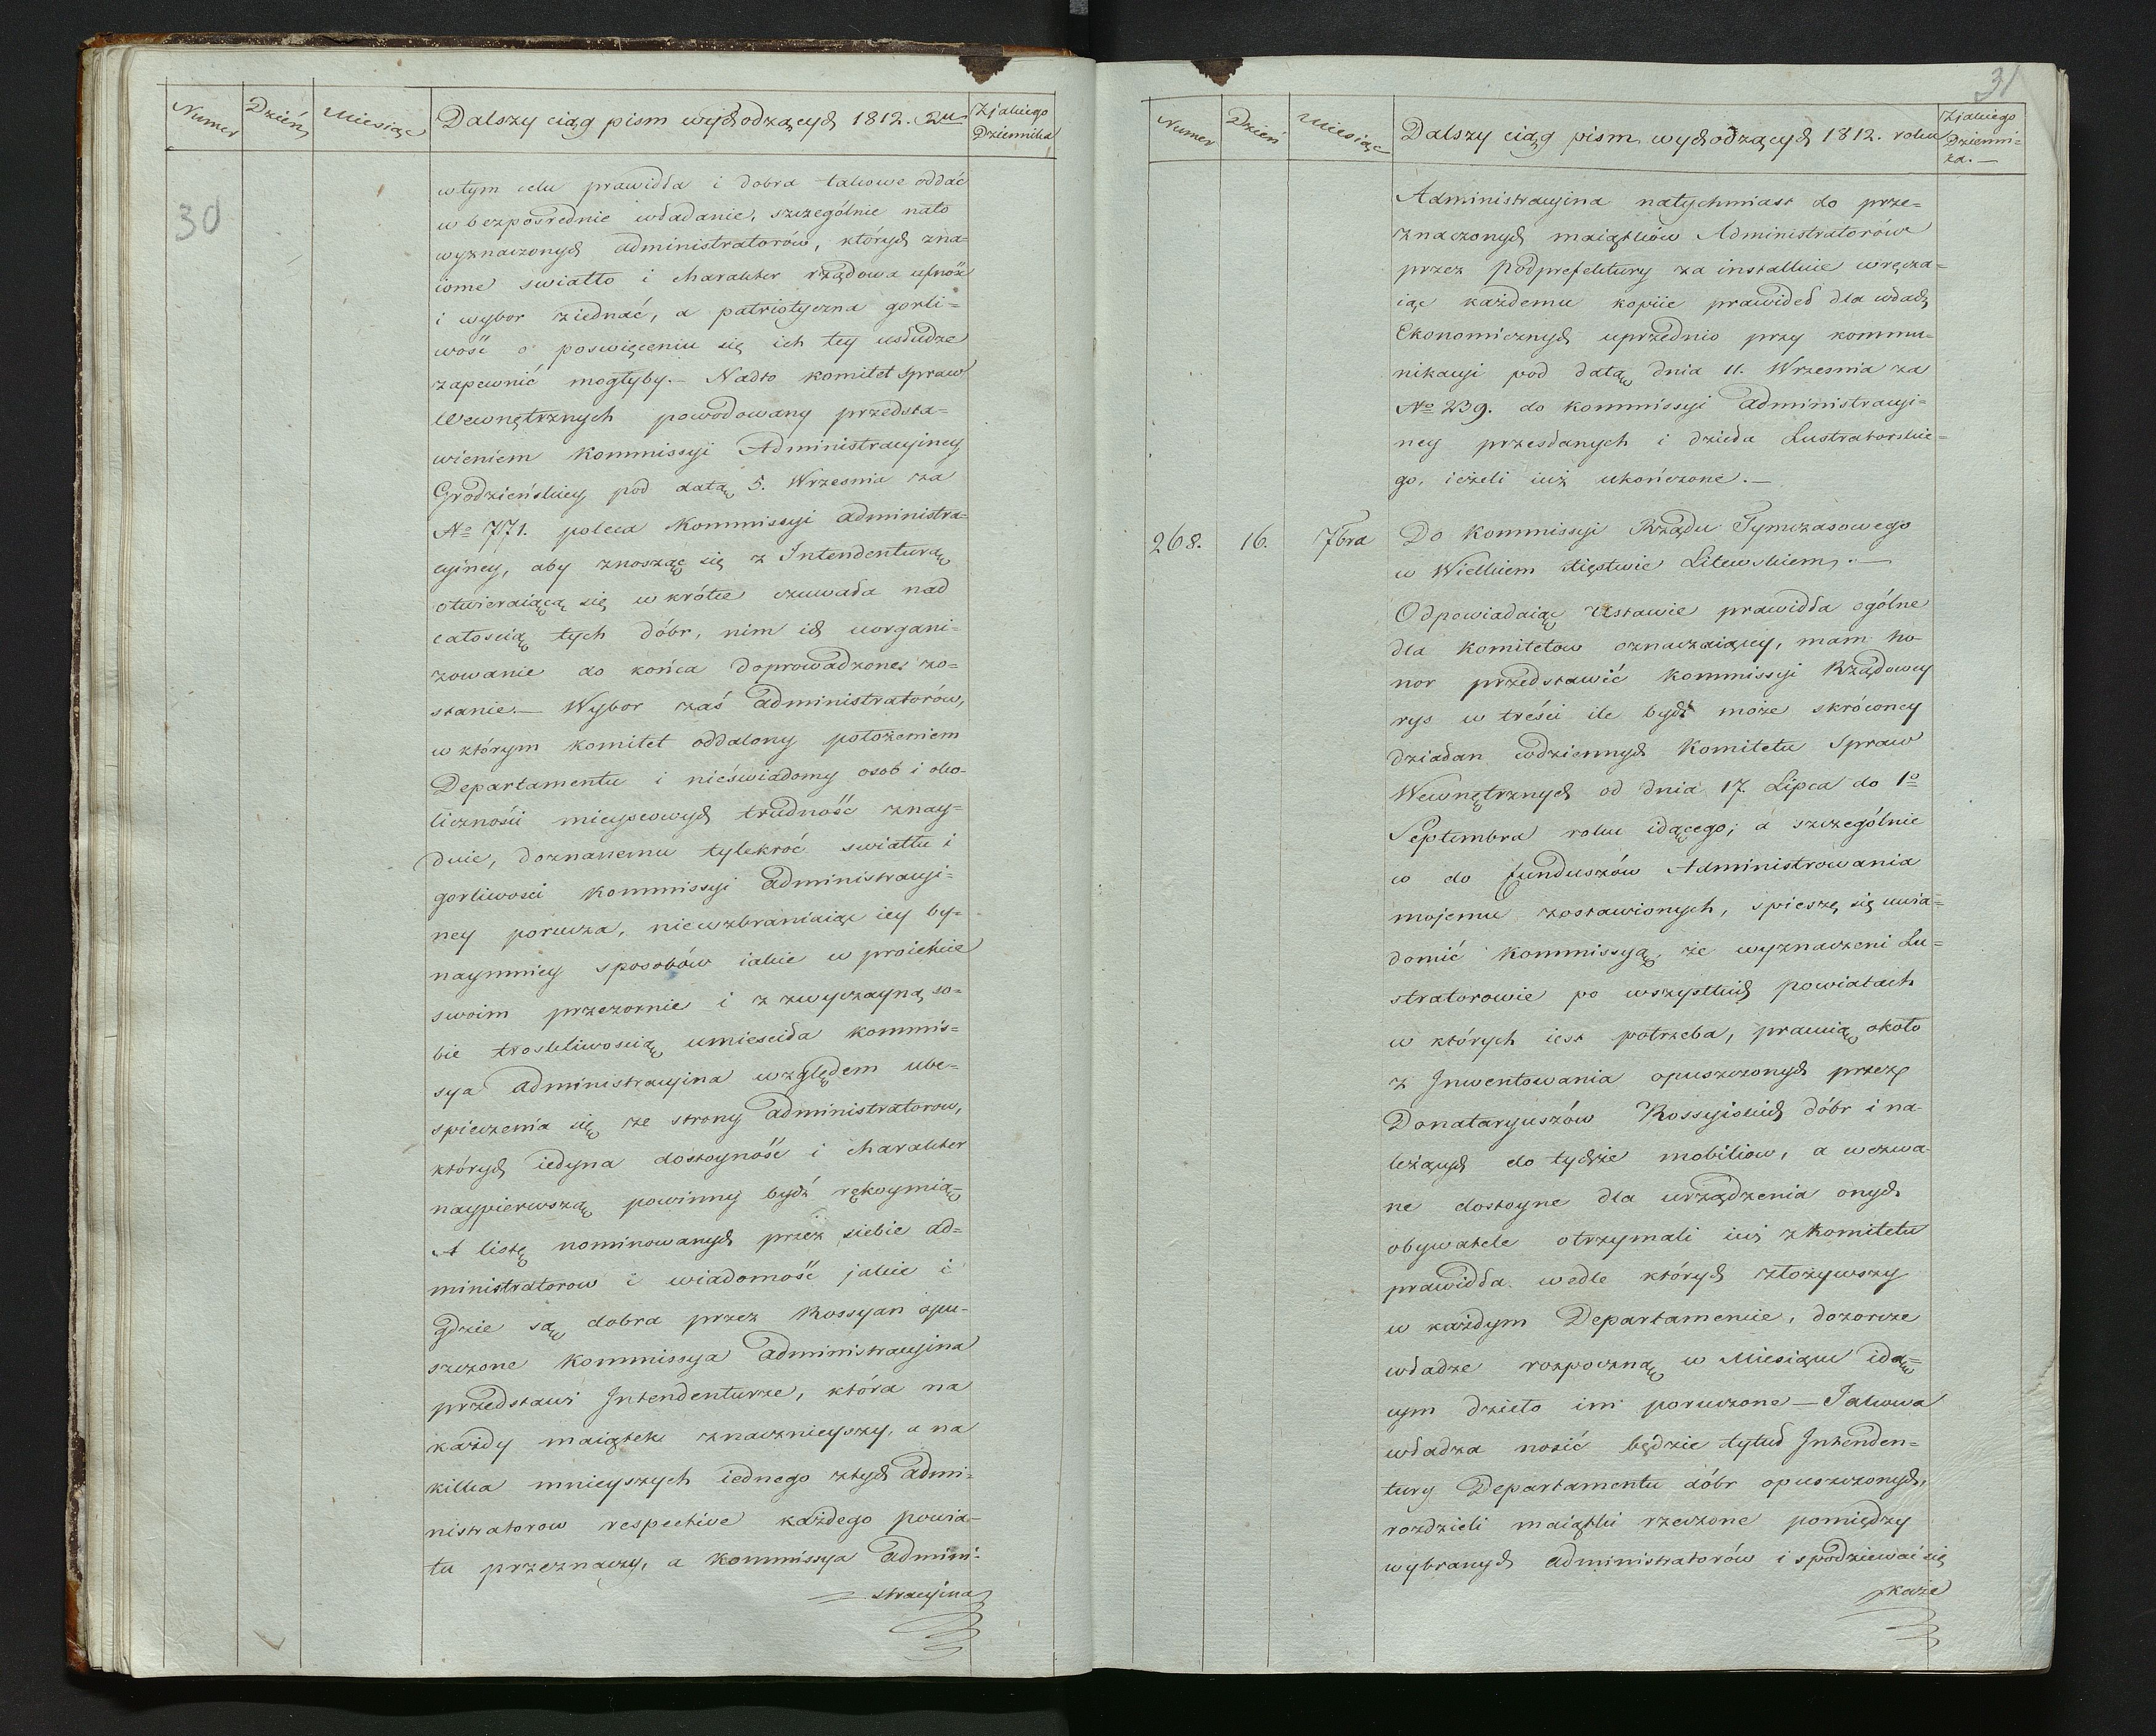 Numer Dzień Miesiąc Dalszy ciąg pism wychodzących 1812. Z jakiego
Dziennika
30
w tym celu prawidła i dobra takowe oddać
w bezpośrednie władanie, szczególnie na to
wyznaczonych administratorów, których zna-
iome swiatło i charakter rządowa ufność
i wybor ziednać, a patriotyczna gorli=
wość o poswięceniu się ich tey usłudze
zapewnić mogłyby.— Nadto komitet spraw
Wewnętrznych powodowany przedsta=
wieniem Kommissyi Administracyiney
Grodzieńskiey pod datą 5. Wrzesnia za
No 771. poleca Kommissyi administra-
cyiney, aby znosząc się z Intendenturą
otwieraiącą się w krótce czuwała nad
całoscią tych dóbr, nim ich uorgani-
zowanie do końca doprowadzone zo=
stanie.— Wybor zaś administratorów,
w którym komitet oddalony położeniem
Departamentu i nieświadomy osob i oko-
liczności mieyscowych trudność znay=
duie, doznanemu tylekróć swiatłu i
gorliwosci Kommissyi administracyi=
ney porucza, niewzbraniaiąc iey by=
naymniey sposobów iakie w proiekcie
swoim przezornie i z zwyczayną so=
bie troskliwoscią umiesciła kommis=
sya administracyina względem ube=
spieczenia się ze strony administratorow,
których iedyna dostoyność i charakter
naypierwszą powinny bydź rękoymią=
A listę nominowanych przez siebie ad=
ministratorow i wiadomość jakie i
gdzie są dobra przez Rossyan opu-
szczone Kommissya administracyina
przedstawi Intendenturze, która na
każdy maiątek znacznieyszy, a na
kilka mnieyszych iednego z tych admi-
nistratorow respective każdego powia-
tu przeznaczy, a kommissya admini-
stracyina
31
Numer Dzień Miesiąc Dalszy ciąg pism wychodzących 1812. roku Z jakiego
Dzienni=
ka.—
Administracyina natychmiast do prze=
znaczonych maiątków Administratorów
przez Podprefektury zainstalluie wręcza=
iąc każdemu kopiie prawideł dla władz
Ekonomicznych uprzednio przy kommu=
nikacyi pod datą dnia 11. Wrzesnia za
No 239. do kommissyi administracyi=
ney przesłanych i dzieła Lustratorskie=
go, ieżeli iuż ukończone.—
268. 16. 7bra Do Kommissyi Rządu Tymczasowego
w Wielkiem Xięstwie Litewskiem.—
Odpowiadaiąc Ustawie prawidła ogólne
dla komitetow oznaczaiącey, mam ho-
nor przedstawić kommissyi Rządowey
rys w treści ile bydź może skróconey
działan codziennych Komitetu spraw
Wewnętrznych od dnia 17. Lipca do 1o
Septembra roku idącego; a szczególnie
co do funduszów Administrowania
mojemu zostawionych, spieszę się uwia=
domić kommissyą, że wyznaczeni Lu=
stratorowie po wszystkich powiatach
w których iest potrzeba, pracuią około
z Inwentowania opuszczonych przez
Donataryuszów Rossyiskich dóbr i na-
leżących do tychże mobiliow, a wezwa-
ne dostoyne dla urządzenia onych
obywatele otrzymali iuż z Komitetu
prawidła wedle których złożywszy
w każdym Departamencie, dozorcze
władze rozpoczną w Miesiącu idą=
cym dzieło im poruczone— Takowa
władza nosić będzie tytuł Intenden=
tury Departamentu dóbr opuszczonych,
rozdzieli maiątki rzeczone pomiędzy
wybranych administratorów i spodziewać się
każe